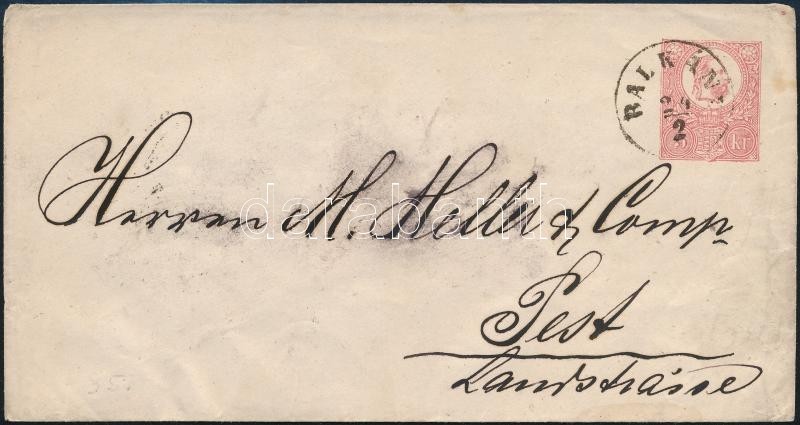 BALKÁNY
22
2
kr
Herren M. Heller & Comp
Pest
Landstrasse
darabanth